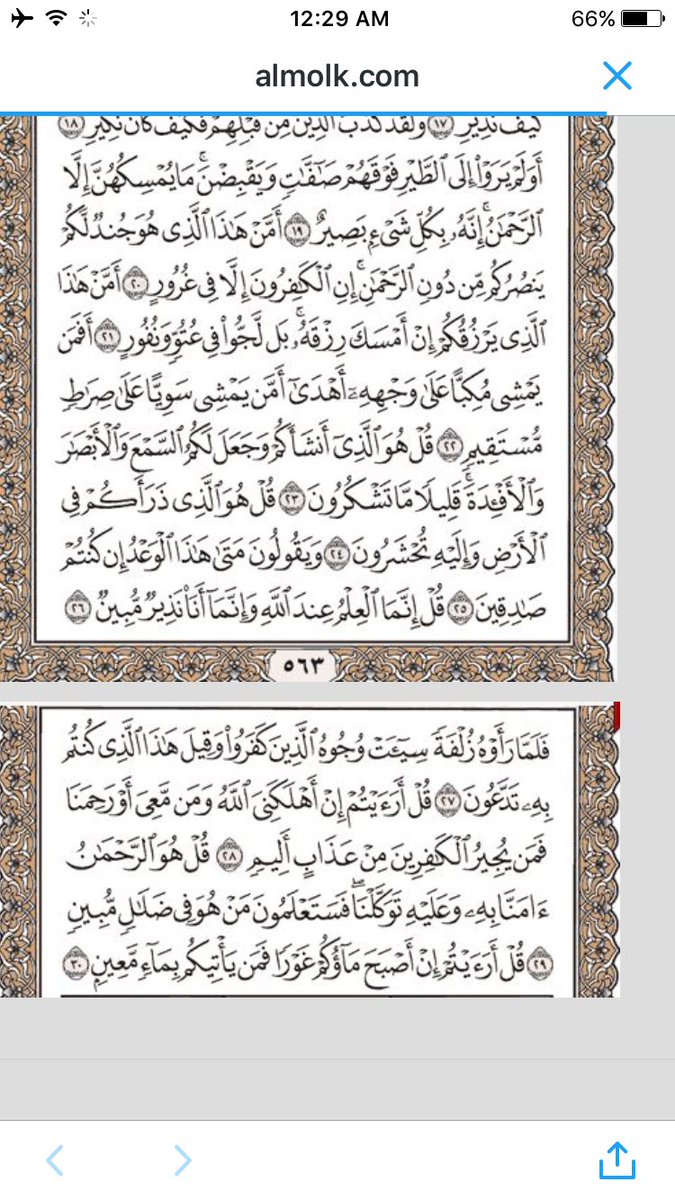 12:29 AM
66%
almolk.com
كَيْفَ نَذِيرِ ١٧ وَلَقَدْ كَذَّبَ ٱلَّذِينَ مِن قَبْلِهِمْ فَكَيْفَ كَانَ نَكِيرِ ١٨
أَوَلَمْ يَرَوْا۟ إِلَى ٱلطَّيْرِ فَوْقَهُمْ صَـٰٓفَّـٰتٍ وَيَقْبِضْنَ ۚ مَا يُمْسِكُهُنَّ إِلَّا
ٱلرَّحْمَـٰنُ ۚ إِنَّهُۥ بِكُلِّ شَىْءٍۭ بَصِيرٌ ١٩ أَمَّنْ هَـٰذَا ٱلَّذِى هُوَ جُندٌ لَّكُمْ
يَنصُرُكُم مِّن دُونِ ٱلرَّحْمَـٰنِ ۚ إِنِ ٱلْكَـٰفِرُونَ إِلَّا فِى غُرُورٍ ٢٠ أَمَّنْ هَـٰذَا
ٱلَّذِى يَرْزُقُكُمْ إِنْ أَمْسَكَ رِزْقَهُۥ ۚ بَل لَّجُّوا۟ فِى عُتُوٍّ وَنُفُورٍ ٢١ أَفَمَن
يَمْشِى مُكِبًّا عَلَىٰ وَجْهِهِۦٓ أَهْدَىٰٓ أَمَّن يَمْشِى سَوِيًّا عَلَىٰ صِرَٰطٍ
مُّسْتَقِيمٍ ٢٢ قُلْ هُوَ ٱلَّذِىٓ أَنشَأَكُمْ وَجَعَلَ لَكُمُ ٱلسَّمْعَ وَٱلْأَبْصَـٰرَ
وَٱلْأَفْـِٔدَةَ ۖ قَلِيلًا مَّا تَشْكُرُونَ ٢٣ قُلْ هُوَ ٱلَّذِى ذَرَأَكُمْ فِى
ٱلْأَرْضِ وَإِلَيْهِ تُحْشَرُونَ ٢٤ وَيَقُولُونَ مَتَىٰ هَـٰذَا ٱلْوَعْدُ إِن كُنتُمْ
صَـٰدِقِينَ ٢٥ قُلْ إِنَّمَا ٱلْعِلْمُ عِندَ ٱللَّهِ وَإِنَّمَآ أَنَا۠ نَذِيرٌ مُّبِينٌ ٢٦
٥٦٣
فَلَمَّا رَأَوْهُ زُلْفَةً سِيٓـَٔتْ وُجُوهُ ٱلَّذِينَ كَفَرُوا۟ وَقِيلَ هَـٰذَا ٱلَّذِى كُنتُم
بِهِۦ تَدَّعُونَ ٢٧ قُلْ أَرَءَيْتُمْ إِنْ أَهْلَكَنِىَ ٱللَّهُ وَمَن مَّعِىَ أَوْ رَحِمَنَا
فَمَن يُجِيرُ ٱلْكَـٰفِرِينَ مِنْ عَذَابٍ أَلِيمٍ ٢٨ قُلْ هُوَ ٱلرَّحْمَـٰنُ
ءَامَنَّا بِهِۦ وَعَلَيْهِ تَوَكَّلْنَا ۖ فَسَتَعْلَمُونَ مَنْ هُوَ فِى ضَلَـٰلٍ مُّبِينٍ
٢٩ قُلْ أَرَءَيْتُمْ إِنْ أَصْبَحَ مَآؤُكُمْ غَوْرًا فَمَن يَأْتِيكُم بِمَآءٍ مَّعِينٍۭ ٣٠